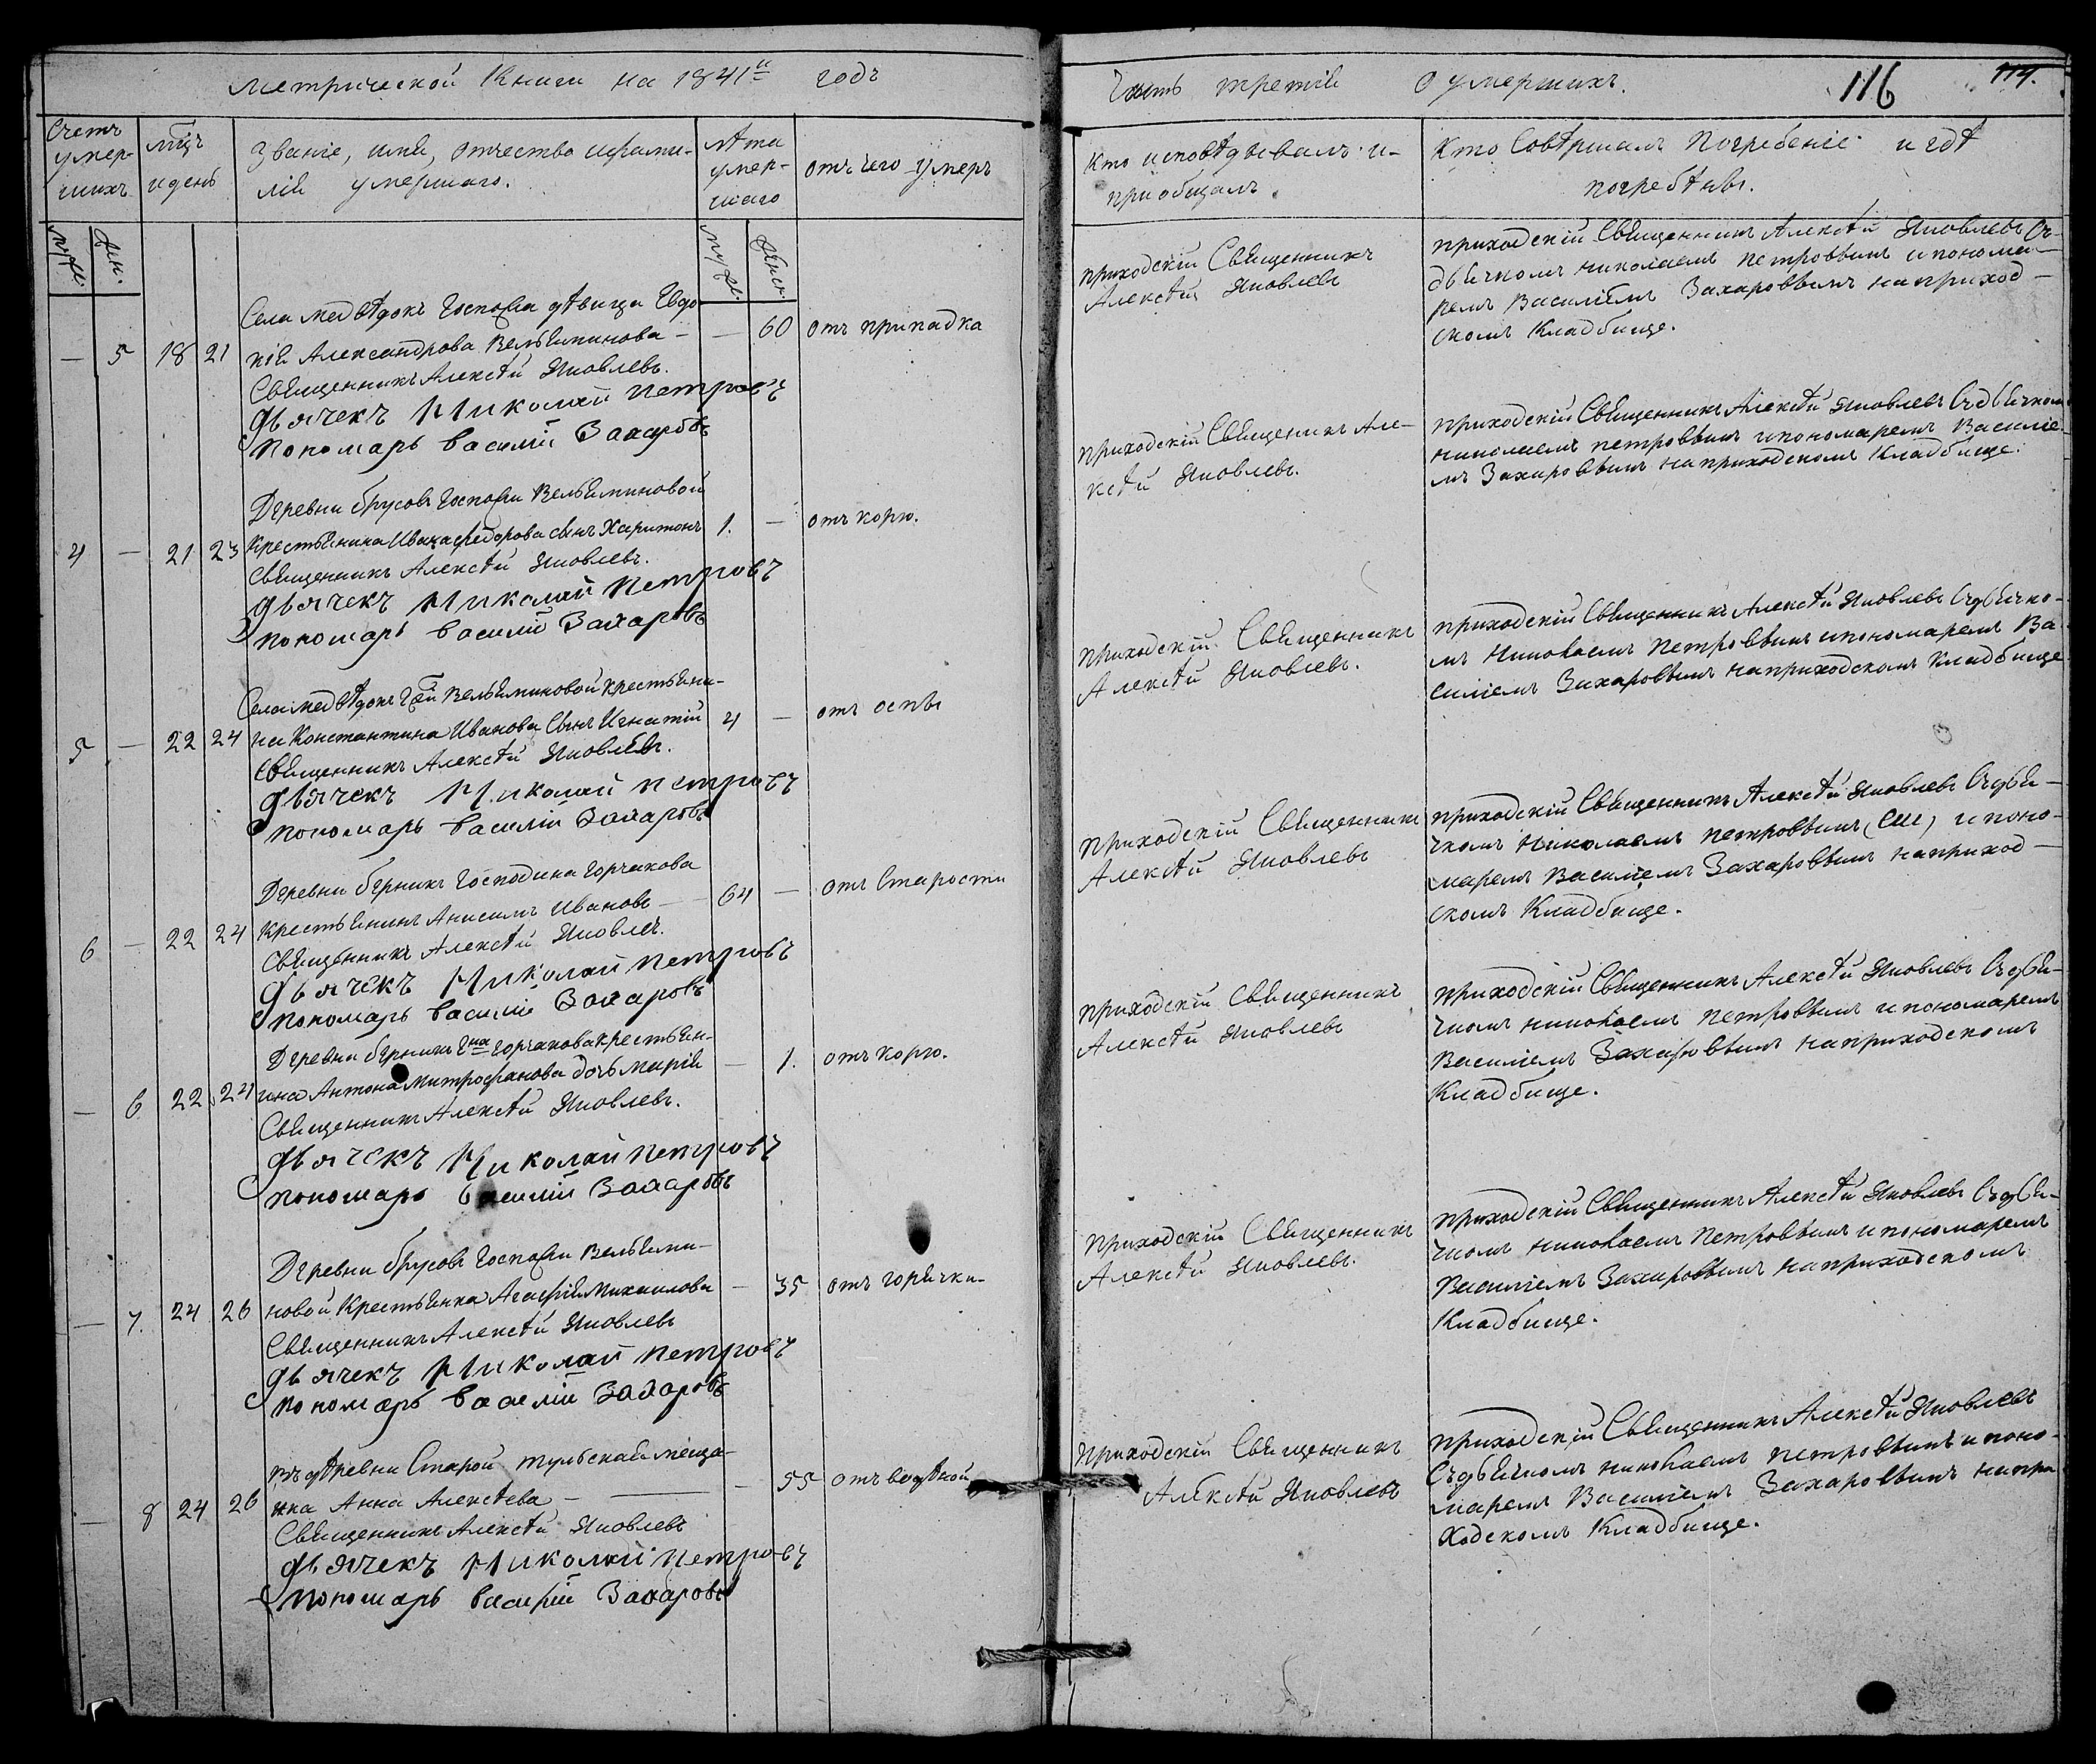 Метрической Книги на 1841й годъ
Счетъ умер-шихъ
мцъ и день
Званіе, имя, отчество и фами-
лія умершаго.
Лѣта умер-шаго
отъ чего умеръ
муж.
жен.
муж.
женс.
Села Медвѣдокъ Госпожа дѣвица Евдо-
— 5 18 21 кія Александрова Вельяминова — — 60 отъ припадка
Священникъ Алексѣй Яковлевъ.
Дьячекъ Николай Петровъ
Пономарь Василій Захаровъ
Деревни Брусовъ Госпожи Вельяминовой
4 — 21 23 крестьянина Ивана Федорова сынъ Харитонъ 1. — отъ корю.
Священникъ Алексѣй Яковлевъ.
Дьячекъ Николай Петровъ
Пономарь Василій Захаровъ
Села Медвѣдокъ Гжи Вельяминовой крестьяни-
5 — 22 24 на Константина Иванова Сынъ Игнатій 4 — отъ оспы
Священникъ Алексѣй Яковлевъ.
Дьячекъ Николай Петровъ
Пономарь Василій Захаровъ
Деревни Берникъ Господина Горчакова
6 — 22 24 крестьянинъ Анисимъ Ивановъ — 64 — отъ Старости
Священникъ Алексѣй Яковлеъ.
Дьячекъ Николай Петровъ
Пономарь Василій Захаровъ
Деревни Берникъ Гна Горчакова крестьян-
— 6 22 24 ина Антона Митрофанова дочь Марія — 1. отъ корю.
Священникъ Алексѣй Яковлевъ.
Дьячекъ Николай Петровъ
Пономарь Василій Захаровъ
Деревни Брусовъ Госпожи Вельями-
— 7. 24 26 новой Крестьянка Агафія Михаилова — 35 отъ горячки
Священникъ Алексѣй Яковлевъ
Дьячекъ Николай Петровъ
Пономарь Василій Захаровъ
Въ деревни Старой тульская меща-
— 8 24 26 нка Анна Алексѣева — — 55 отъ водяной
Священникъ Алексѣй Яковлевъ
Дьячекъ Николай Петровъ
Пономарь Василій Захаровъ
Часть третія О умершихъ. 116 114.
Кто исповѣдывалъ и
пріобщалъ.
Кто Совѣршалъ Погребеніе и гдѣ
погребѣны.
Приходскій Священникъ
Алексѣй Яковлевъ
Приходскій Священникъ Алексѣй Яковлевъ Съ
дьячкомъ Николаемъ Петровымъ и понома-
ремъ Василіемъ Захаровымъ на приход-
скомъ Кладбище.
Приходскій Священникъ Але-
ксѣй Яковлевъ.
Приходскій Священникъ Алексѣй Яковлевъ Съ дьячкомъ
Николаемъ Петровымъ и пономаремъ Василіе-
мъ Захаровымъ на приходскомъ Кладбище.
Приходскій Священникъ
Алексѣй Яковлевъ.
Приходскій Священникъ Алексѣй Яковлевъ Съ дьячко-
мъ Николаемъ Петровымъ и пономаремъ Ва-
силіемъ Захаровымъ на приходскомъ Кладбище
Приходскій Священникъ
Алексѣй Яковлевъ
Приходскій Священникъ Алексѣй Яковлевъ Съ дья-
чкомъ Николаемъ Петровымъ, и поно-
маремъ Василіемъ Захаровымъ на приход-
скомъ Кладбище.
Приходскій Священникъ
Алексѣй Яковлевъ
Приходскій Священникъ Алексѣй Яковлевъ Съ дья-
чкомъ Николаемъ Петровымъ и пономаремъ
Василіемъ Захаровымъ на приходскомъ
Кладбище.
Приходскій Священникъ
Алексѣй Яковлевъ.
Приходскій Священникъ Алексѣй Яковлевъ Съ дья-
чкомъ Николаемъ Петровымъ и пономаремъ
Василіемъ Захаровымъ на приходскомъ
Кладбище.
Приходскій Священникъ
Алексѣй Яковлевъ
Приходскій Священникъ Алексѣй Яковлевъ
Съ дьячкомъ Николаемъ Петровымъ и поно-
маремъ Василіемъ Захаровымъ на при-
ходскомъ Кладбище.